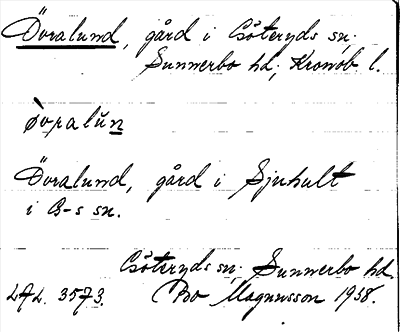 Öoralund, gård i Göteryds sn.
Sunnerbo hd, Kronob l.
òoralŭn
Öoralund, gård i Sjuhult
i G-s sn.
Göteryds sn, Sunnerbo hd
LAL. 3573. Bo Magnusson 1938.